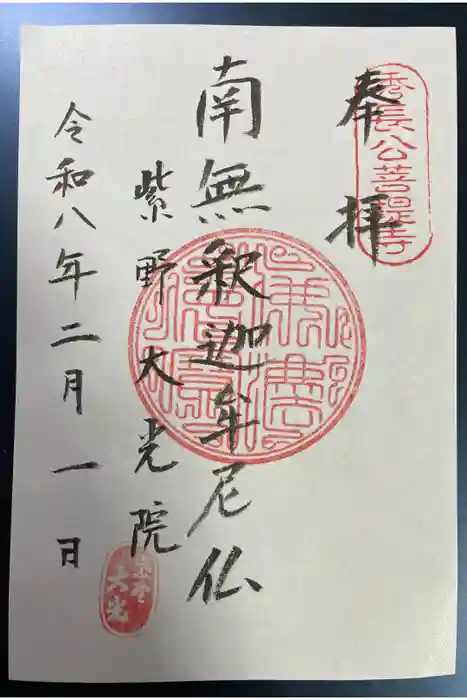 秀長公菩提寺
奉拝
南無釈迦牟尼仏
紫野大光院
令和八年二月一日
大光